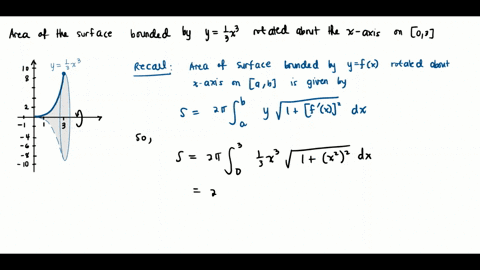 Area of the surface bounded by y = 1/3 x³ rotated about the x-axis on [0,3]
y = 1/3 x³
10
8
6
4
2
1 3
-2
-4
-6
-8
-10
Recall: Area of surface bounded by y=f(x) rotated about
x-axis on [a,b] is given by
S = 2π ∫_a^b y √(1 + [f'(x)]²) dx
So,
S = 2π ∫_0^3 1/3 x³ √(1 + (x²)²) dx
= 2